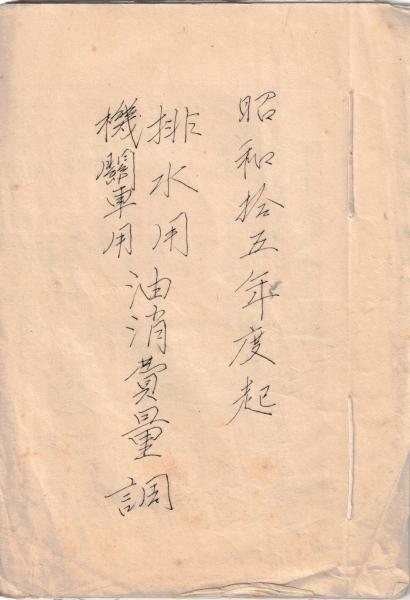 昭和拾五年度起
排水用
機關車用
油消費量調